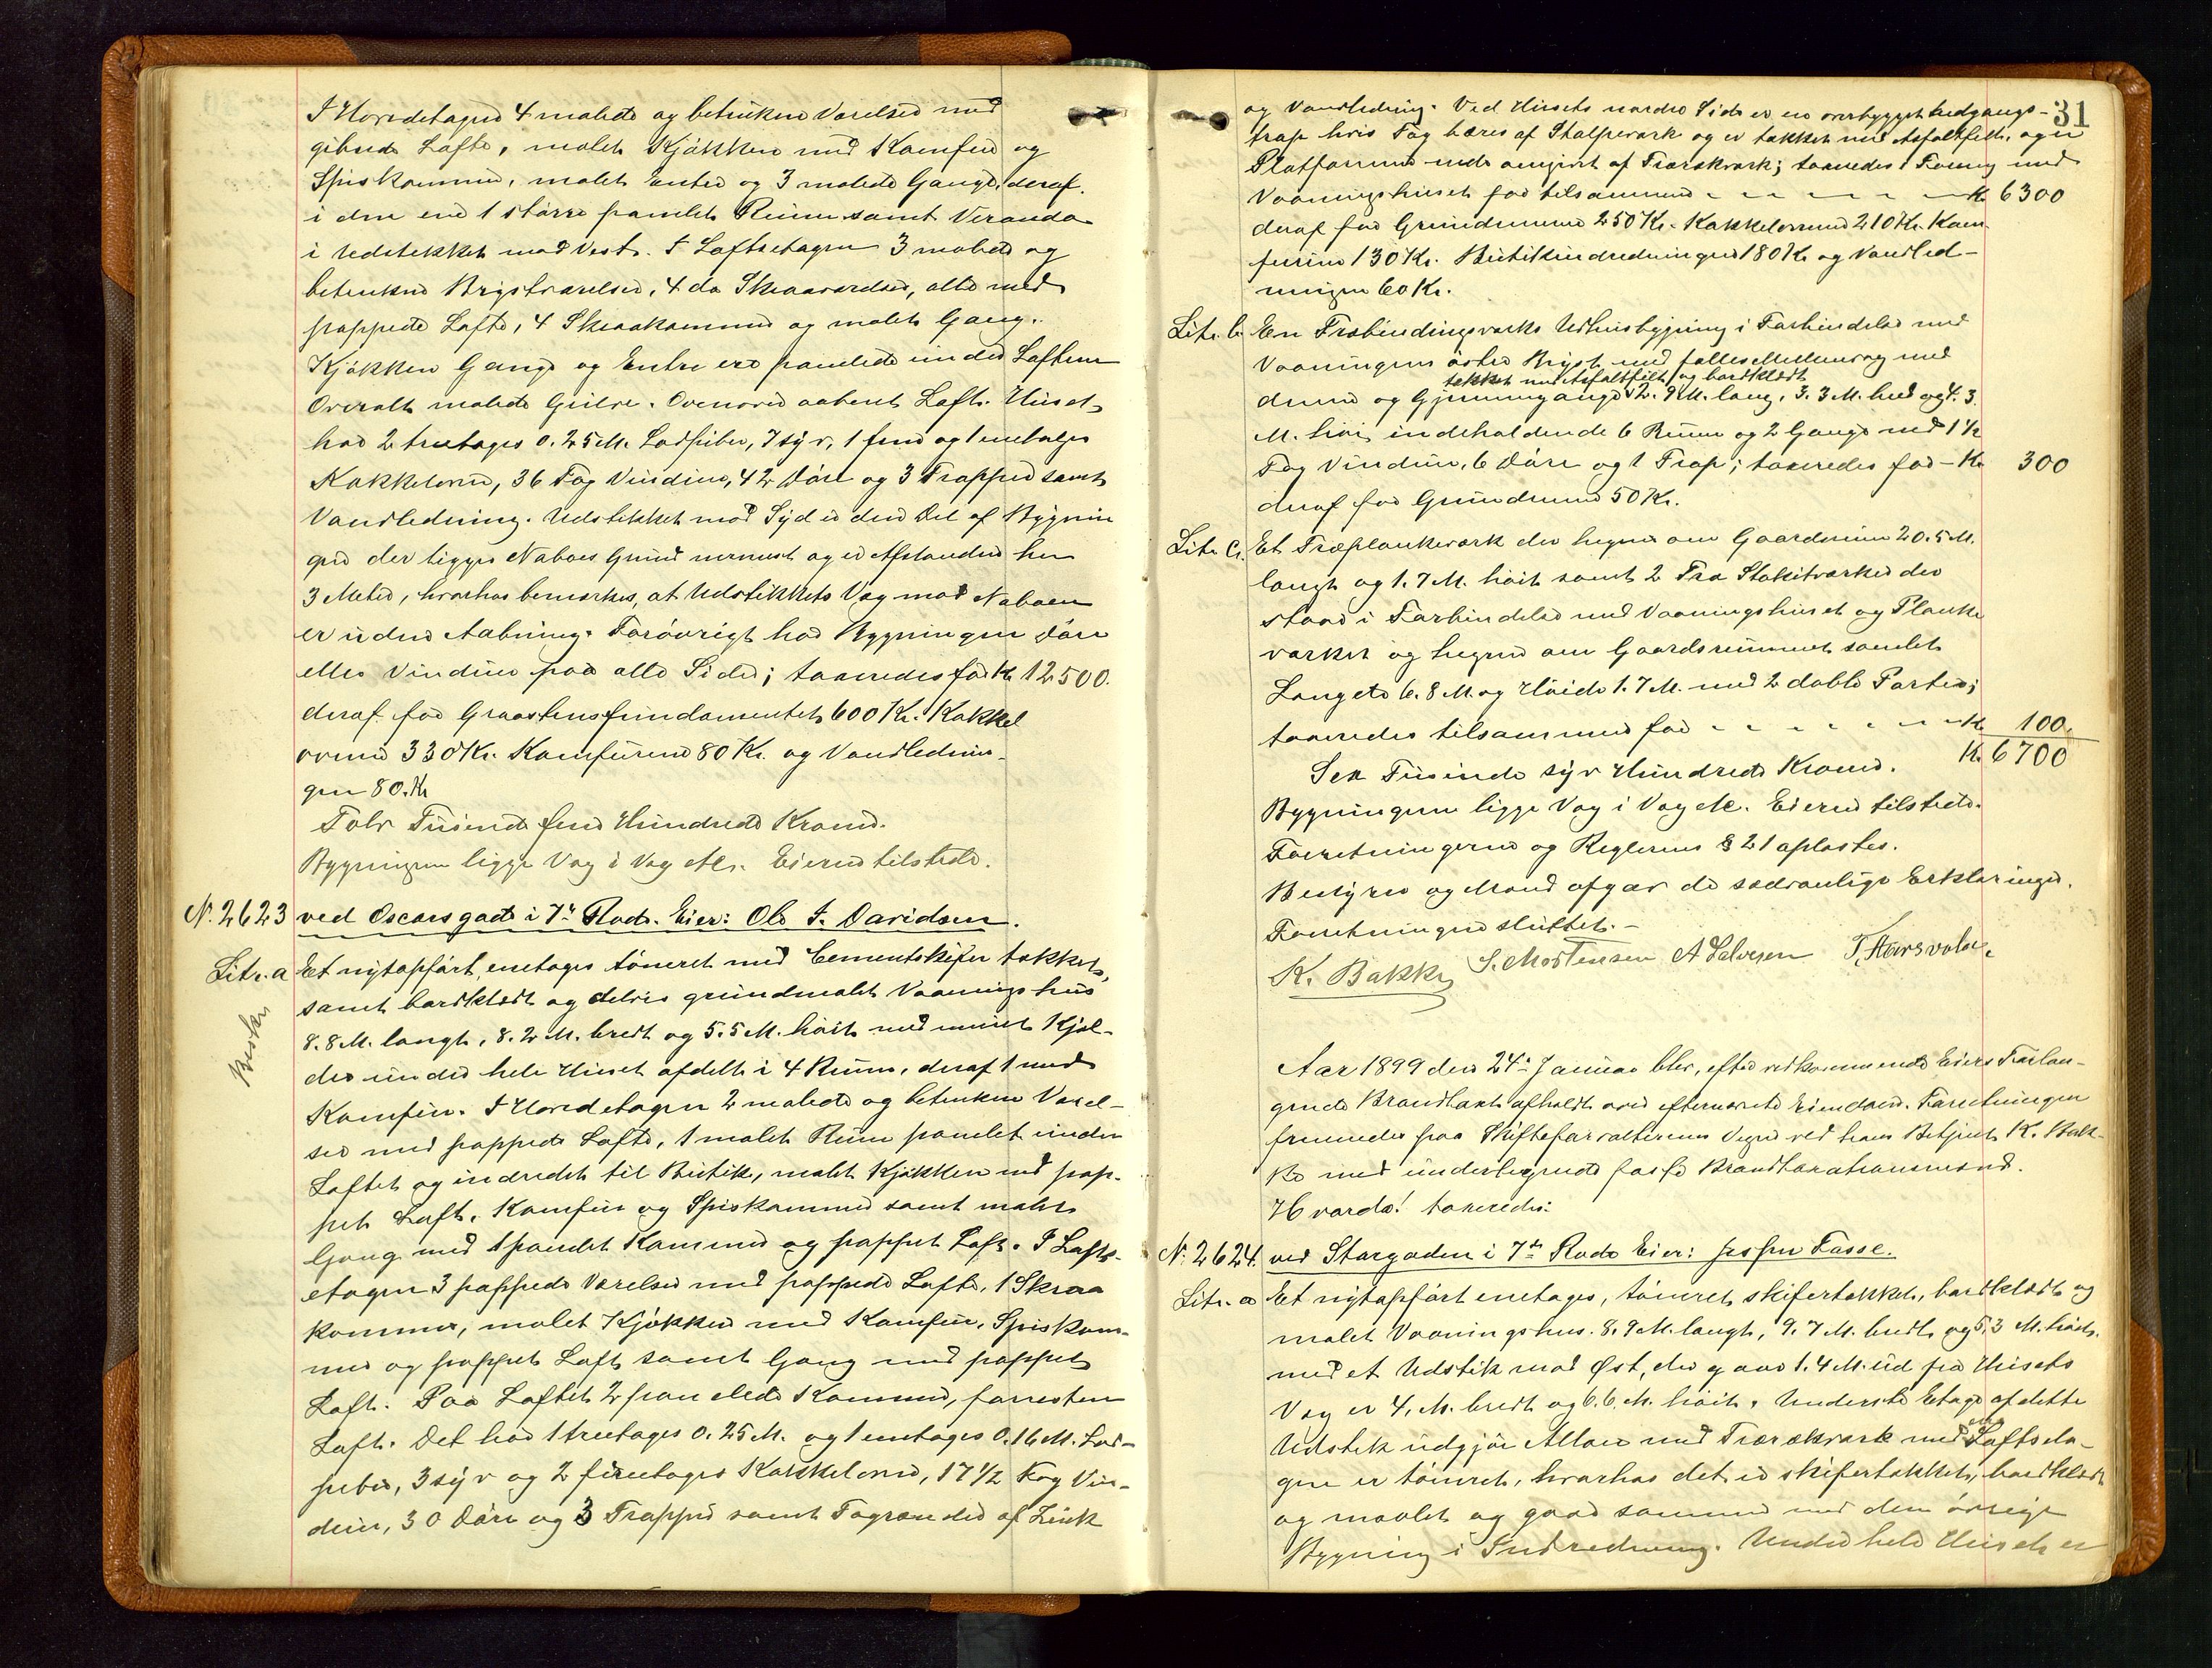 I Hovedetagen 4 malede og betrukne Værelser med
gibsede Lofte, malet Kjøkken med Komfur og
Spiskammer, malet Entre og 3 malede Gange, deraf
i den ene 1 større panelet Rum samt Veranda
i Udstikket mod Vest. I Loftsetagen 3 malede og
betrukne Brystværelser, 4 do Skraaværelser, alle med
pappede Lofte, 4 Skraakammere og malet Gang.
Kjøkken Gange og Entre ere panelede under Loftene
Overalt malede Gulve. Ovenover aabent Loft. Huset
har 2 treetages 0.25 M. Lodpiber, 7 syv, 1 fem og 1 enetages
Kakkelovne, 36 Fag Vinduer, 42 Døre og 3 Trapper samt
Vandledning. Udstikket mod Syd er den Del af Bygnin
gen der ligger Naboes Grund nærmest og er Afstanden her
3 Meter, hvorhos bemærkes, at Udstikkets Væg mod Naboen
er uden Aabning. Forøvrigt har Bygningen Døre
eller Vinduer paa alle Sider; taxeredes for Kr 12500.
deraf for Graastensfundamentet 600 Kr. Kakkel
ovnene 330 Kr. Komfurene 80 Kr. og Vandlednin-
gen 80. Kr
Tolv Tusinde fem Hundrede Kroner.
Bygningen ligger Væg i Væg Ae. Eieren tilstede.
N. 2623 ved Oscarsgade i 7de Rode. Eier: Ole I. Davidsen.
Litr. a Et nytopført enetages tømret med Cementskifer tækket,
samt bordklædt og delvis grundmalet Vaaningshus
8.8 M. langt, 8.2 M. bredt og 5.5 M. høit med muret Kjæl-
der under hele Huset afdelt i 4 Rum, deraf 1 med
Komfur. I Hovedetagen 2 malede og betrukne Værel-
ser med pappede Lofte, 1 malet Rum panelet under
Loftet og indredet til Butik, malet Kjøkken med pap-
pet Loft, Komfur og Spiskammer samt malet
Gang med 1 panelet Kammer og pappet Loft. I Lofts-
etagen 3 pappede Værelser med pappede Lofte, 1 Skraa
kammer, malet Kjøkken med Komfur, Spiskam-
mer og pappet Loft samt Gang med pappet
Loft. Paa Loftet 2 panelede Kammere, forresten
Loft. Det har 1 treetages 0.25 M. og 1 enetages 0.16 M. Lod-
piber, 3 syv og 2 fireetages Kakkelovne, 17 1/2 Fag Vin-
duer, 30 Døre og 3 Trapper samt Tagrender af Zink
31
og Vandledning. Ved Husets nordre Side er en overbygget Nedgangs-
trap hvis Tag bæres af Stolpeværk og er tækket med Asfaltfilt, og er
Platformen med omgivet af Træværk; taxeredes i Forening med
Vaaningshuset for tilsammen - - - - - - Kr 6300
deraf for Grundmuren 250 Kr. Kakkelovnene 210 Kr. Kom
furene 130 Kr. Butikindredningen 180 Kr og Vandled-
ningen 60 Kr.
Litr. b En Træbindingsværks Udhusbygning i Forbindelse med
Vaaningens østre Bryst med fælles Mellemvæg med
tækket med Asfaltfilt og bordklædt
denne og Gjennemgange 12.9 M. lang, 3.3 M. bred og 4.3
M. høi, indeholdende 6 Rum og 2 Gange med 1 1/2
Fag Vinduer, 6 Døre og 1 Trap; taxeredes for - Kr 300
deraf for Grundmuren 50 Kr.
Litr. c. Et Træplankeværk der hegner om Gaardsrum 20.5 M.
langt og 1.7 M. høit samt 2 Træ Stakitværker der
staar i Forbindelse med Vaaningshuset og Planke
værket og hegner om Gaardsrummet samlet
Længde 6.8 M. og Høide 1.7 M. med 2 doble Porter;
taxeredes tilsammen for - - - - - - - Kr 100.
Kr 6700
Sex Tusinde syv Hundrede Kroner.
Bygningerne ligge Væg i Væg Ae. Eieren tilstede.
Forretningerne og Reglernes § 21 oplæstes.
Bestyrer og Mænd afgav de sædvanlige Erklæringer.
Forretningen sluttet. -
K. Bakke S. Mortensen A Salvesen T. Haarsvola.
Aar 1899 den 24de Januar blev, efter vedkommende Eiers Forlan-
gende Brandtaxt afholdt over efternævnte Eiendom. Forretningen
fremmedes paa Skifteforvalterens Vegne ved hans Betjent K. Bak-
ke med undertegnede faste Brandtaxationsmænd.
Hvorda! taxeredes:
N. 2624. ved Storgaden i 7de Rode Eier: Jesper Fasse.
Litr. a Et nytopført enetages, tømret skifertækket, bordklædt og
malet Vaaningshus. 8.9 M. langt, 9.7 M. bredt og 5.3 M. høit.
med et Udstik mod Øst, der gaar 1.4 M. ud fra Husets
Væg er 4, M. bredt og 6.6. M. høit. Underste Etage af dette
Udstik udgjør Altan med Træværk med Loftseta-
gen er tømret, hvorhos det er skifertækket, bordklædt
og maalet og gaar sammen med den øvrige
Bygning i Indredning. Under hele Huset er